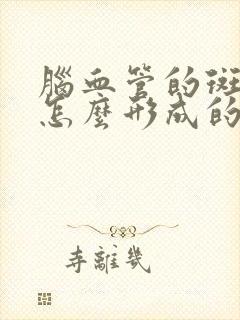 腦血管的斑
怎麼形成的
寺離幾